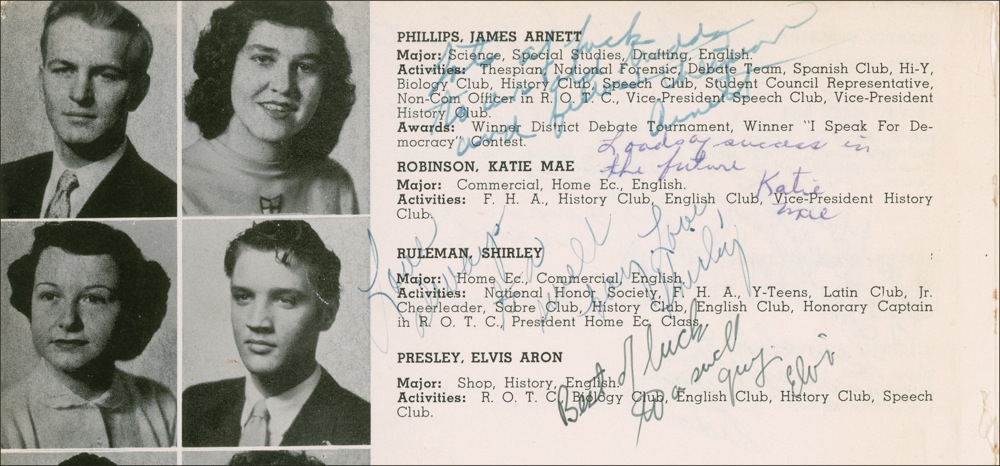 PHILLIPS, JAMES ARNETT
Major: Science, Special Studies, Drafting, English.
Activities: Thespian, National Forensic, Debate Team, Spanish Club, Hi-Y,
Biology Club, History Club, Speech Club, Student Council Representative,
Non-Com Officer in R. O. T. C., Vice-President Speech Club, Vice-President
History Club.
Awards: Winner District Debate Tournament, Winner "I Speak For De-
mocracy" Contest.
Lots of luck
Arnett
Loads of success in
the future
Katie
Mae
ROBINSON, KATIE MAE
Major: Commercial, Home Ec., English.
Activities: F. H. A., History Club, English Club, Vice-President History
Club.
RULEMAN, SHIRLEY
Major: Home Ec., Commercial, English.
Activities: National Honor Society, F. H. A., Y-Teens, Latin Club, Jr.
Cheerleader, Sabre Club, History Club, English Club, Honorary Captain
in R. O. T. C., President Home Ec. Class.
Love
Always
Love
Shirley
PRESLEY, ELVIS ARON
Major: Shop, History, English.
Activities: R. O. T. C., Biology Club, English Club, History Club, Speech
Club.
Best of luck
to a swell
guy.
Elvis